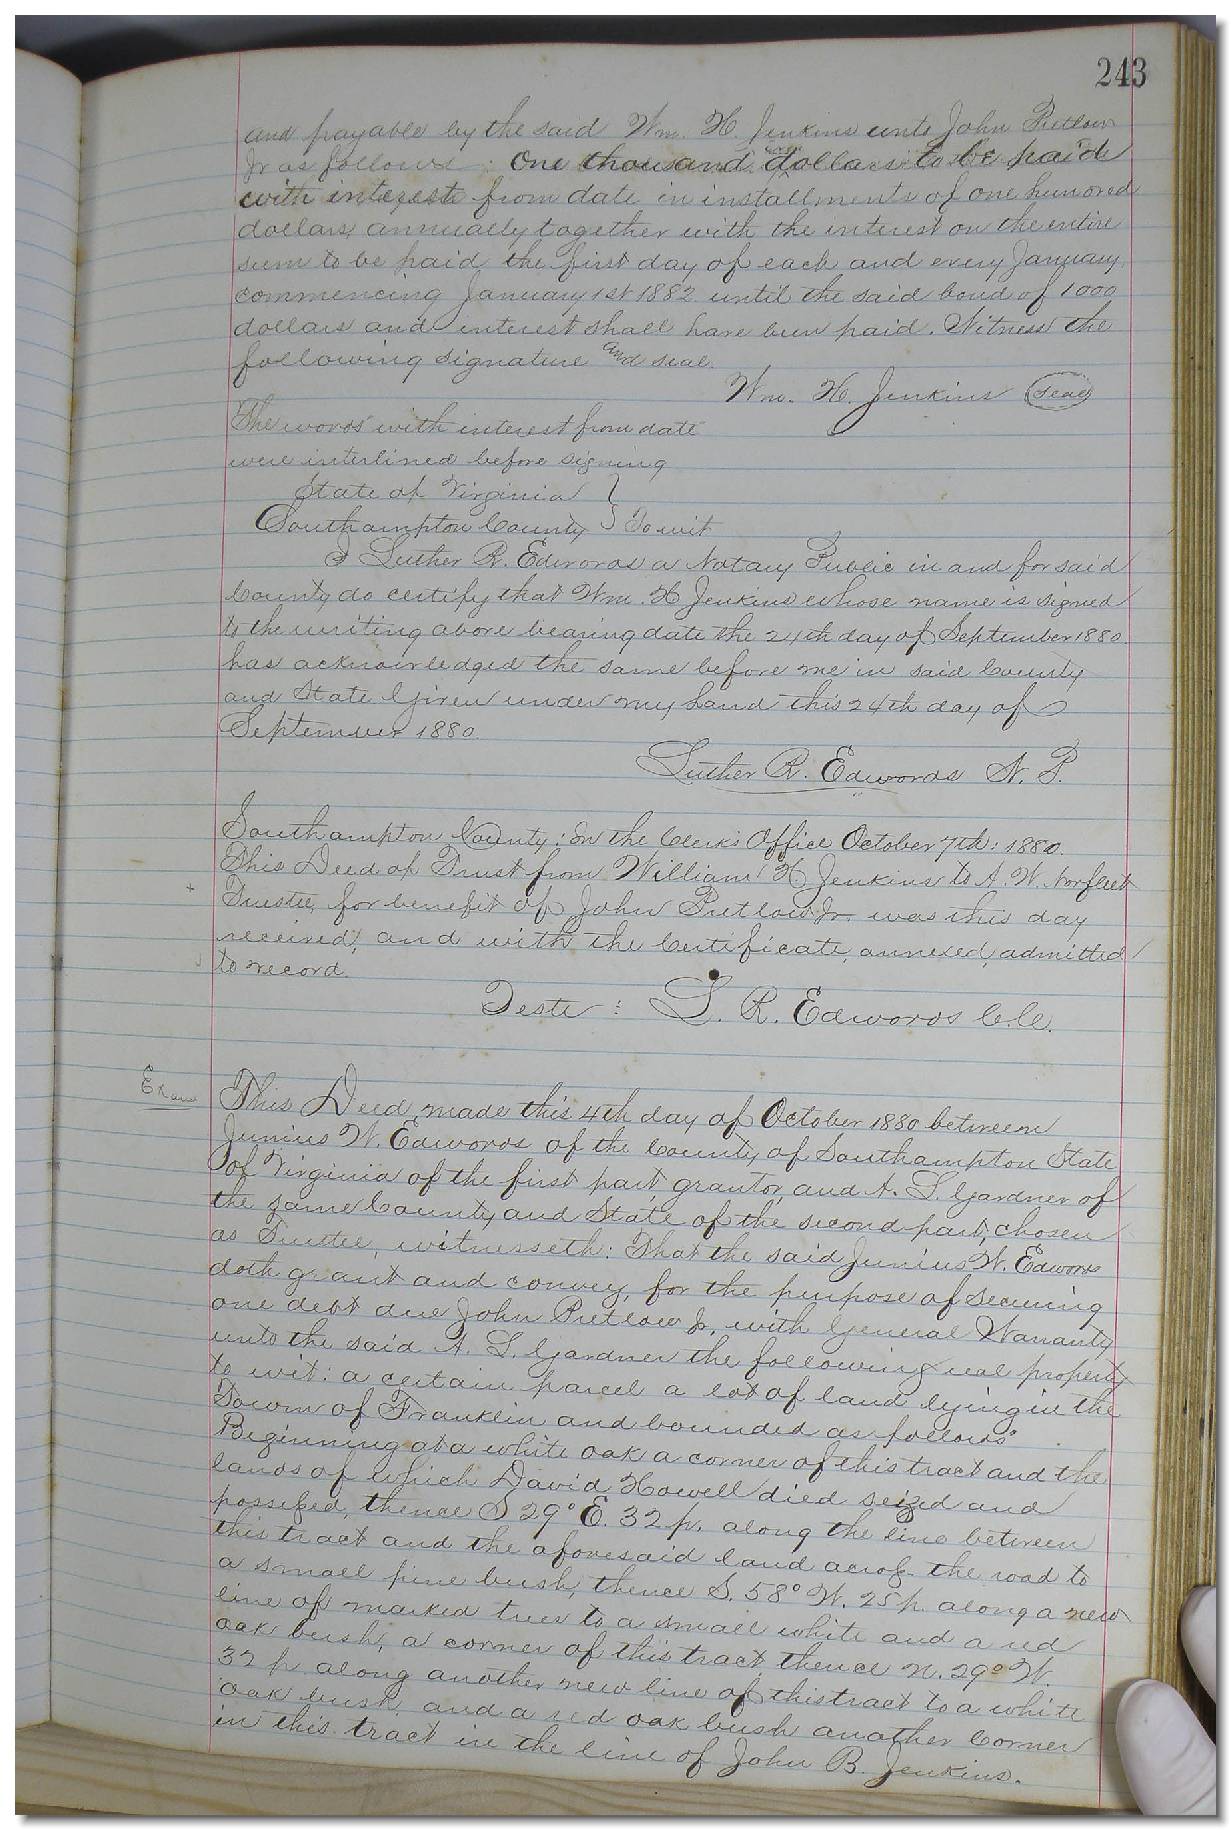 243
and payable by the said Wm. H. Jenkins unto John Pretlow
Jr as follows: One thousand dollars to be paid
with interest from date in installments of one hundred
dollars annually together with the interest on the entire
sum to be paid the first day of each and every January
commencing January 1st 1882 until the said bond of 1000
dollars and interest shall have been paid. Witness the
following signature and seal.
Wm. H. Jenkins (Seal)
The words with interest from date
were interlined before signing
State of Virginia }
Southampton County } To wit
I Luther R. Edwards a Notary Public in and for said
County do certify that Wm. H Jenkins whose name is signed
to the writing above bearing date the 24th day of September 1880
has acknowledged the same before me in said County
and State Given under my hand this 24th day of
September 1880.
Luther R. Edwards N. P.
Southampton County: In the Clerk's Office October 7th: 1880.
This Deed of Trust from William H Jenkins to A. W. Norfleet
Trustee, for benefit of John Pretlow Jr. was this day
received, and with the Certificate, annexed, admitted
to record.
Teste: L. R. Edwards C.C.
Exam
This Deed, made this 4th day of October 1880 between
Junius W. Edwards of the County of Southampton State
of Virginia of the first part, grantor, and A. L. Gardner of
the same County and State of the second part, chosen
as Trustee, witnesseth: That the said Junius W. Edwards
doth grant and convey, for the purpose of securing
one debt due John Pretlow Jr, with General Warranty
unto the said A. L. Gardner the following real property
to wit: a certain parcel a lot of land lying in the
Town of Franklin and bounded as follows"
Beginning at a white oak a corner of this tract and the
lands of which David Howell died seized and
possessed, thence S 29° E. 32 p. along the line between
this tract and the aforesaid land across the road to
a small pine bush, thence S. 58° W. 25 p. along a new
line of marked trees to a small white and a red
oak bush, a corner of this tract, thence N. 29° W.
32 p. along another new line of this tract to a white
oak bush, and a red oak bush another corner
in this tract in the line of John B. Jenkins.